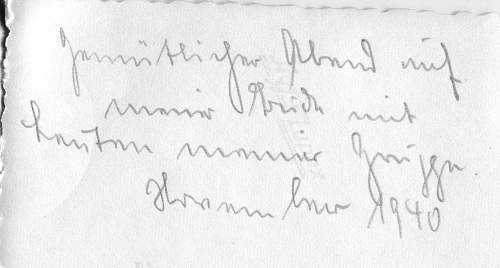 Gemütlicher Abend auf
meiner Bude mit
Leuten meiner Gruppe.
November 1940